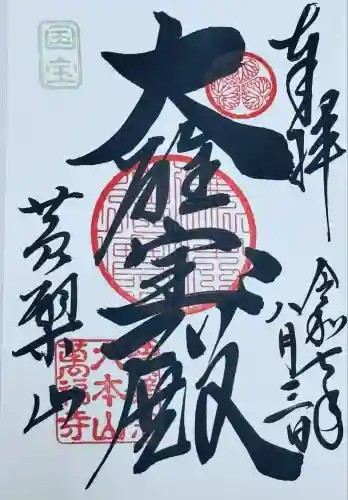 奉拝
令和七年
八月三日
大雄宝殿
国宝
黄檗山
大本山
萬福寺